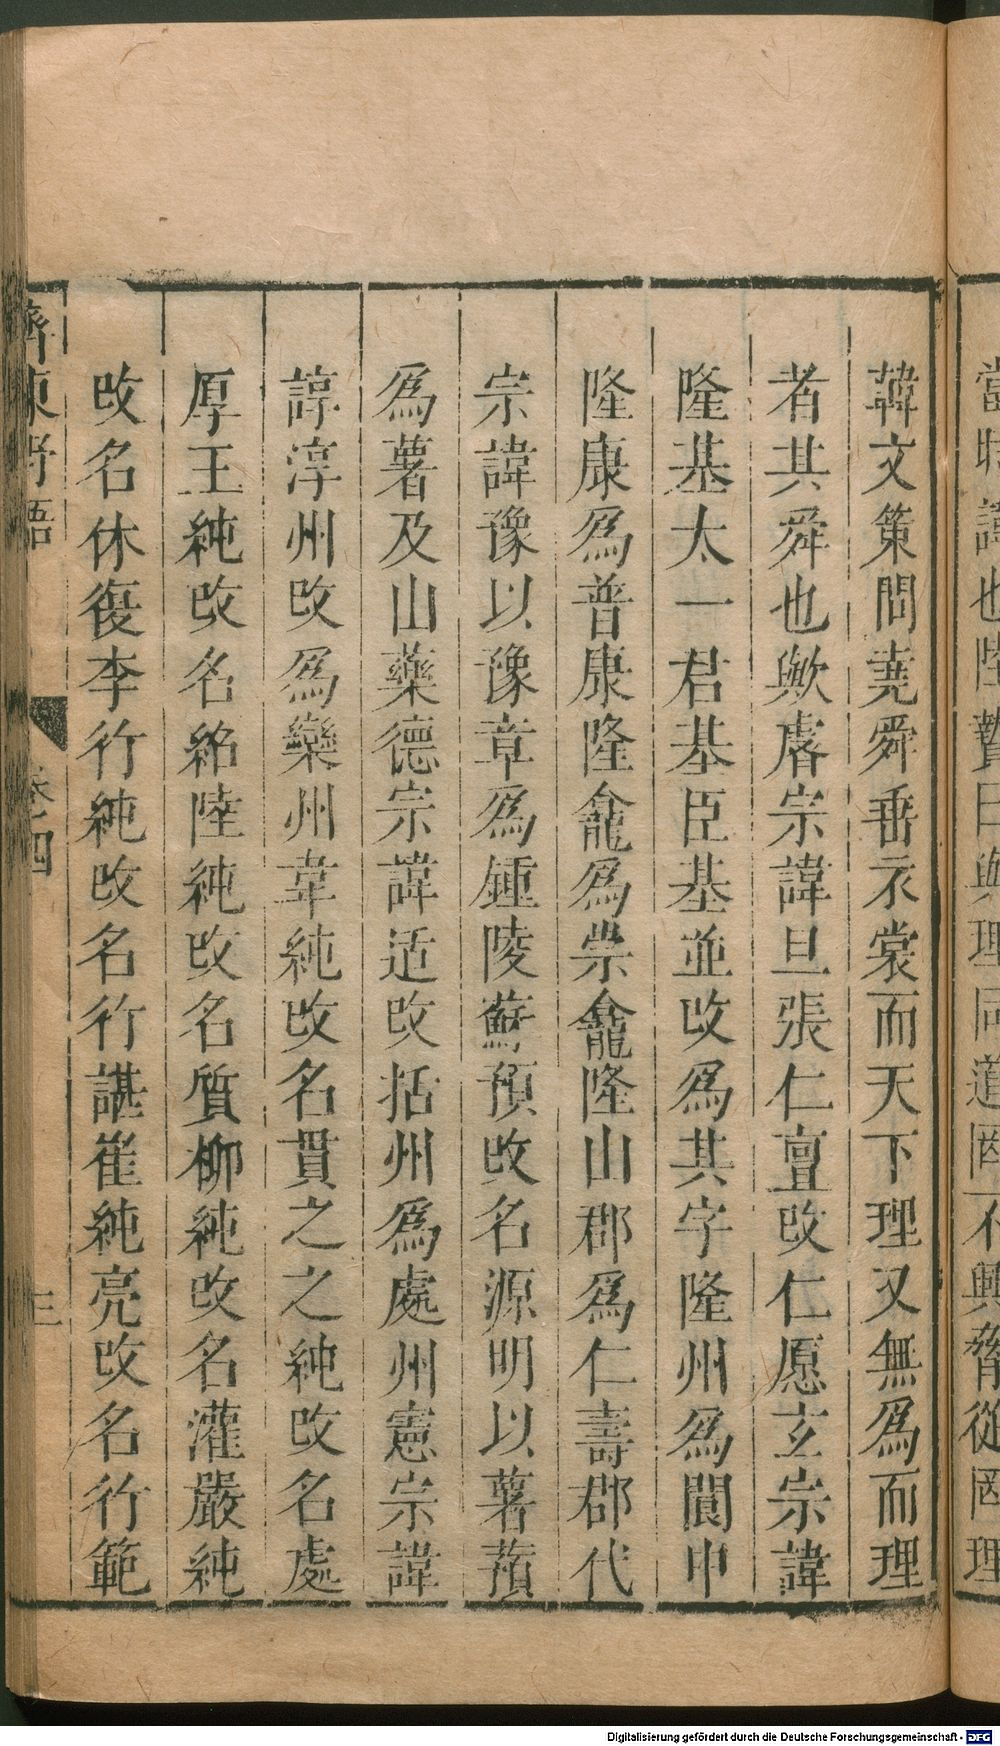 當時諱也陸贄曰與理同道罔不興脅從罔理
韓文策問堯舜垂衣裳而天下理又無爲而理
者其舜也歟睿宗諱旦張仁亶改仁愿玄宗諱
隆基太一君基臣基並改爲其字隆州爲閬中
隆康爲普康隆龕爲崇龕隆山郡爲仁壽郡代
宗諱豫以豫章爲鍾陵蘇預改名源明以薯蕷
爲薯及山藥德宗諱适改括州爲處州憲宗諱
諄淳州改爲欒州韋純改名貫之之純改名處
厚王純改名紹陸純改名質柳純改名灌嚴純
改名休復李行純改名行諶崔純亮改名行範
齊東野語 卷四 三
Digitalisierung gefördert durch die Deutsche Forschungsgemeinschaft - DFG